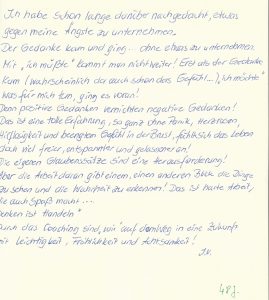 Ich habe schon lange darüber nachgedacht, etwas
gegen meine Ängste zu unternehmen.
Der Gedanke kam und ging ... ohne etwas zu unternehmen.
Mit „ich müßte" kommt man nicht weiter! Erst als der Gedanke
kam (wahrscheinlich da auch schon das Gefühl...) „ich möchte"
was für mich tun, ging es voran!
Denn positive Gedanken vernichten negative Gedanken!
Das ist eine tolle Erfahrung, so ganz ohne Panik, Herzrasen,
und beengtem Gefühl in der Brust, fühlt sich das Leben
doch viel freier, entspannter und gelassener an!
Die eigenen Glaubenssätze sind eine Herausforderung!
Aber die Arbeit daran gibt einem, einen anderen Blick die Dinge
zu sehen und die Wahrheit zu erkennen! Das ist harte Arbeit,
die auch Spaß macht...
Denken ist Handeln"
Durch das Coaching sind „wir" auf dem Weg in eine Zukunft
mit Leichtigkeit, Fröhlichkeit und Achtsamkeit!
48 J.